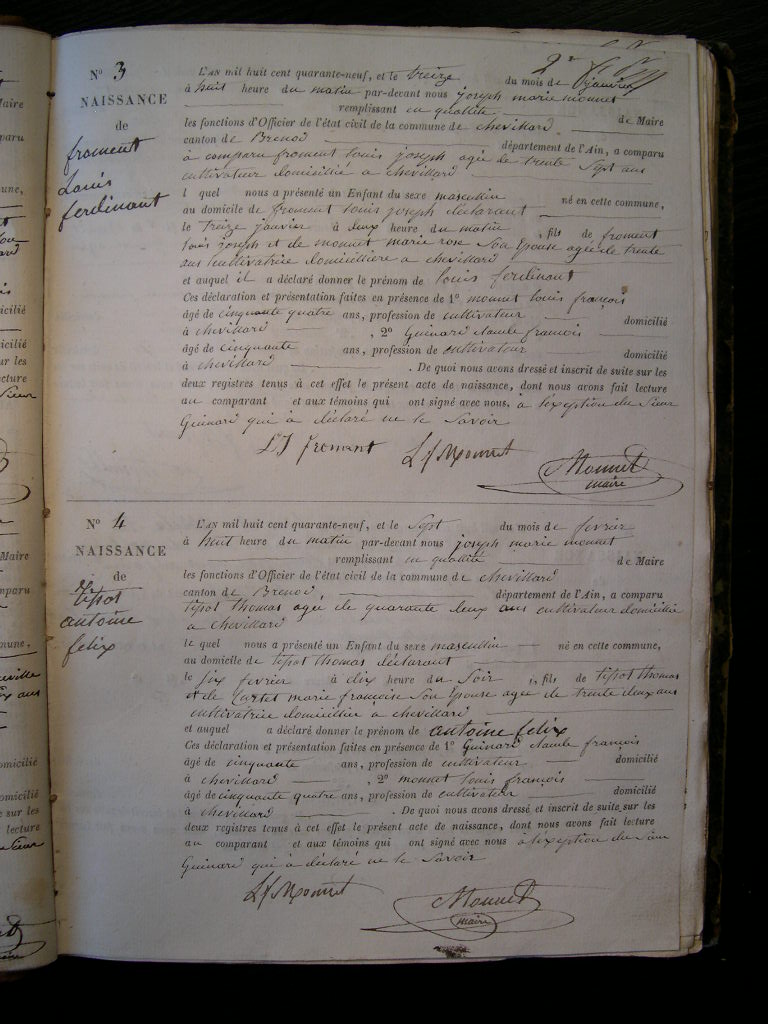 N° 3
NAISSANCE
de
froment
Louis
ferdinant
L'AN mil huit cent quarante-neuf, et le treize du mois de janvier
à huit heure du matin par-devant nous joseph marie monnet
remplissant en qualité de Maire
les fonctions d'Officier de l'état civil de la commune de chevillard
canton de Brenod département de l'Ain, a comparu
à comparu froment louis joseph agée de trente Sept ans
cultivateur domicillié à chevillard
l quel nous a présenté un Enfant du sexe masculin né en cette commune,
au domicile de froment louis joseph déclarant
le treize janvier à deux heure du matin , fils de froment
louis joseph et de monnet marie rose Son Epouse agée de trente
ans cultivatrice domicillière a chevillard
et auquel il a déclaré donner le prénom de louis ferdinant
Ces déclaration et présentation faites en présence de 1° monnet louis françois
âgé de cinquante quatre ans, profession de cultivateur domicilié
à chevillard , 2° Guinard claude françois
âgé de cinquante ans, profession de cultivateur domicilié
à chevillard . De quoi nous avons dressé et inscrit de suite sur les
deux registres tenus à cet effet le présent acte de naissance, dont nous avons fait lecture
au comparant et aux témoins qui ont signé avec nous, à l'exeption du Sieur
Guinard qui à déclaré ne le Savoir
L J froment L f Monnet Monnet
maire
N° 4
NAISSANCE
de
tissot
antoine
felix
L'AN mil huit cent quarante-neuf, et le Sept du mois de fevrier
à huit heure du matin par-devant nous joseph marie monnet
remplissant en qualité de Maire
les fonctions d'Officier de l'état civil de la commune de chevillard
canton de Brenod département de l'Ain, a comparu
tissot thomas agée de quarante deux ans cultivateur domicillié
a chevillard
le quel nous a présenté un Enfant du sexe masculin né en cette commune,
au domicile de tissot thomas déclarant
le six fevrier à dix heure du Soir , fils de tissot thomas
et de marie françoise Son Epouse agée de trente deux ans
cultivatrice domicillier a chevillard
et auquel a déclaré donner le prénom de antoine felix
Ces déclaration et présentation faites en présence de 1° Guinard claude françois
âgé de cinquante ans, profession de cultivateur domicilié
à chevillard , 2° monnet louis françois
âgé de cinquante quatre ans, profession de cultivateur domicilié
à chevillard . De quoi nous avons dressé et inscrit de suite sur les
deux registres tenus à cet effet le présent acte de naissance, dont nous avons fait lecture
au comparant et aux témoins qui ont signé avec nous a l'exeption du Sieur
Guinard qui à déclaré ne le Savoir
L f Monnet Monnet
maire